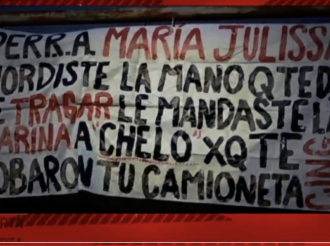 PERR.A. MARÍA JULISS
MORDISTE LA MANO Q TE D
E TRAGAR LE MANDASTE LA
ARINA A "CHELO" XQ TE
OBARON TU CAMIONETA